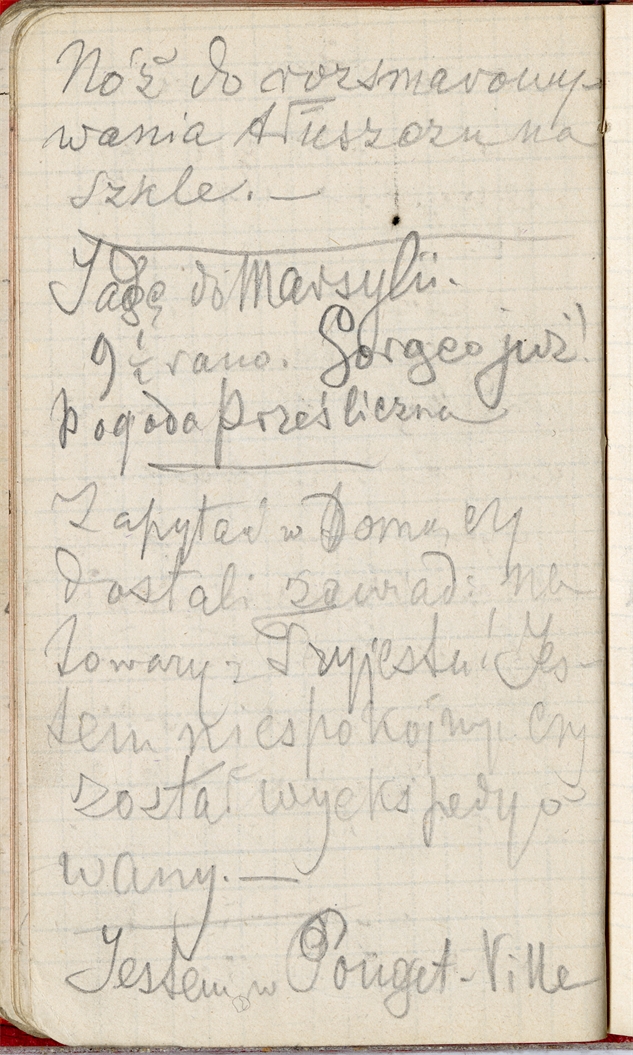 Nóż do rozsmarowy-
wania tłuszczu na
szkle. —
Jadę do Marsylii.
9 ½ rano. Gorąco już!
Pogoda prześliczna
Zapytać w Domu, czy
dostali zawiad: na
towary z Tryjestu! Jes-
tem niespokojny. Czy
został wyekspedyo
wany. —
Jestem w Pouget-Ville